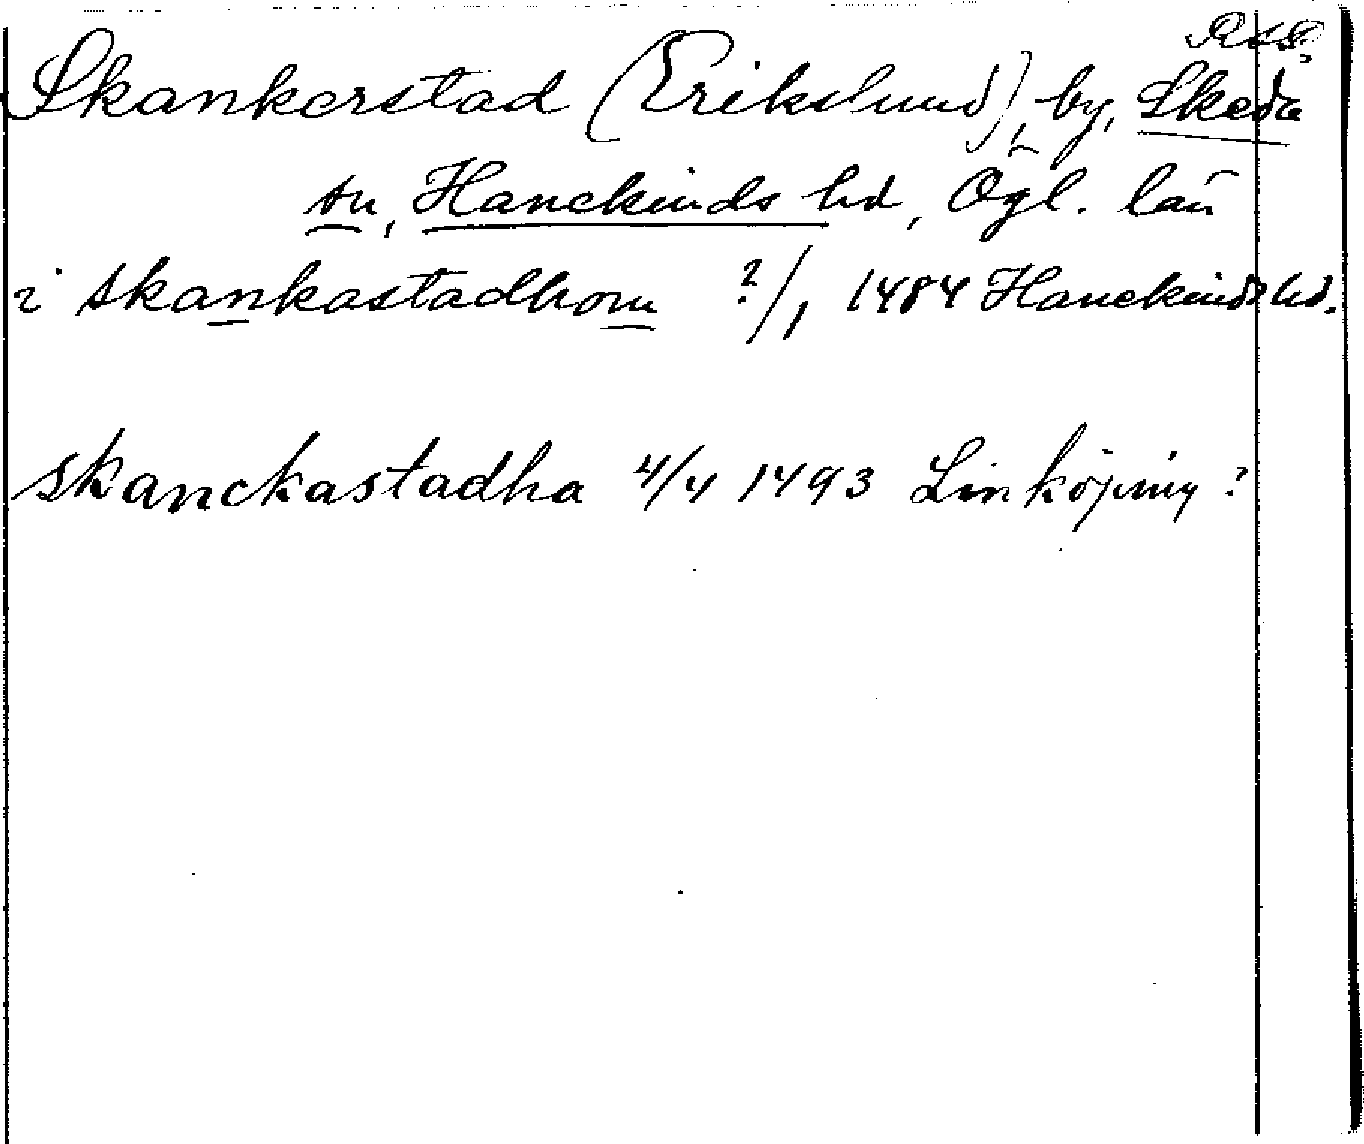 Skankerstad (Erikslund), by, Skeda
sn, Hanekinds hd, Ögl. län
i skankastadhom ?/1 1484 Hanekinds hd.
skanckastadha 4/4 1493 Linköping ?